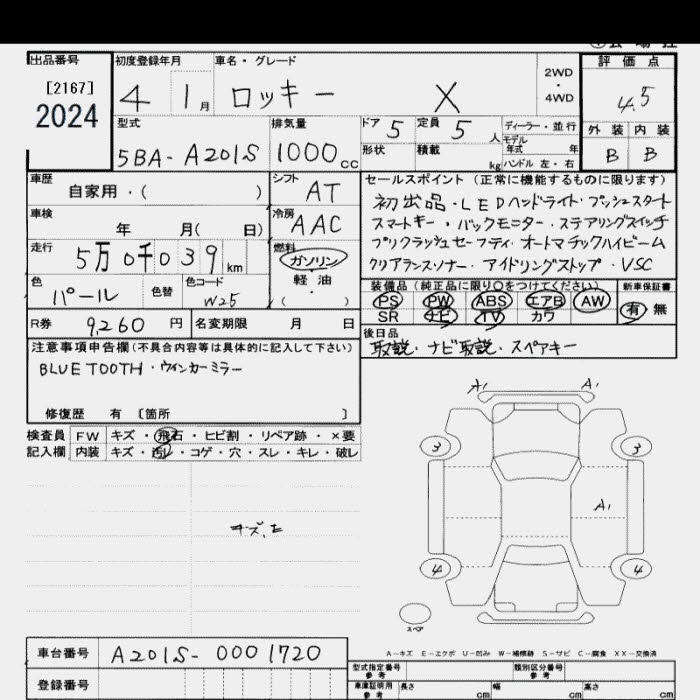 出品番号
[2167]
2024
初度登録年月
4 1月
車名・グレード
ロッキー X
2WD
・
4WD
評価点
4.5
外装 内装
B B
型式
5BA-A201S
排気量
1000cc
ドア 5
定員 5人
ディーラー・並行
モデル
年式 年
形状
積載 kg
ハンドル 左・右
車歴
自家用・( )
シフト
AT
車検
年 月( 日)
冷房
AAC
走行
5万0千039km
燃料
ガソリン
・
軽油
・
色
パール
色替
色コード
W25
R券 9,260円
名変期限 月 日
セールスポイント(正常に機能するものに限ります)
初出品・LEDヘッドライト・プッシュスタート
スマートキー・バックモニター・ステアリングスイッチ
プリクラッシュセーフティ・オートマチックハイビーム
クリアランスソナー・アイドリングストップ・VSC
装備品(純正品に限り〇をつけてください)
PS PW ABS エアB AW
SR ナビ TV カワ
新車保証書
有 無
後日品
取説・ナビ取説・スペアキー
注意事項申告欄(不具合内容等は具体的に記入して下さい)
BLUETOOTH・ウインカーミラー
修復歴 有 〔箇所 〕
検査員
記入欄
FW キズ・飛石・ヒビ割・リペア跡・×要
内装 キズ・汚レ・コゲ・穴・スレ・キレ・破レ
A1 A1
3 3
A1
4 4
スペア
A-キズ E-エクボ U-凹み W-補修跡 S-サビ C-腐食 XX-交換済
車台番号 A201S-0001720
登録番号
型式指定番号
参考
類別区分番号
参考
車庫証明用
参考
長さ cm 幅 cm 高さ cm